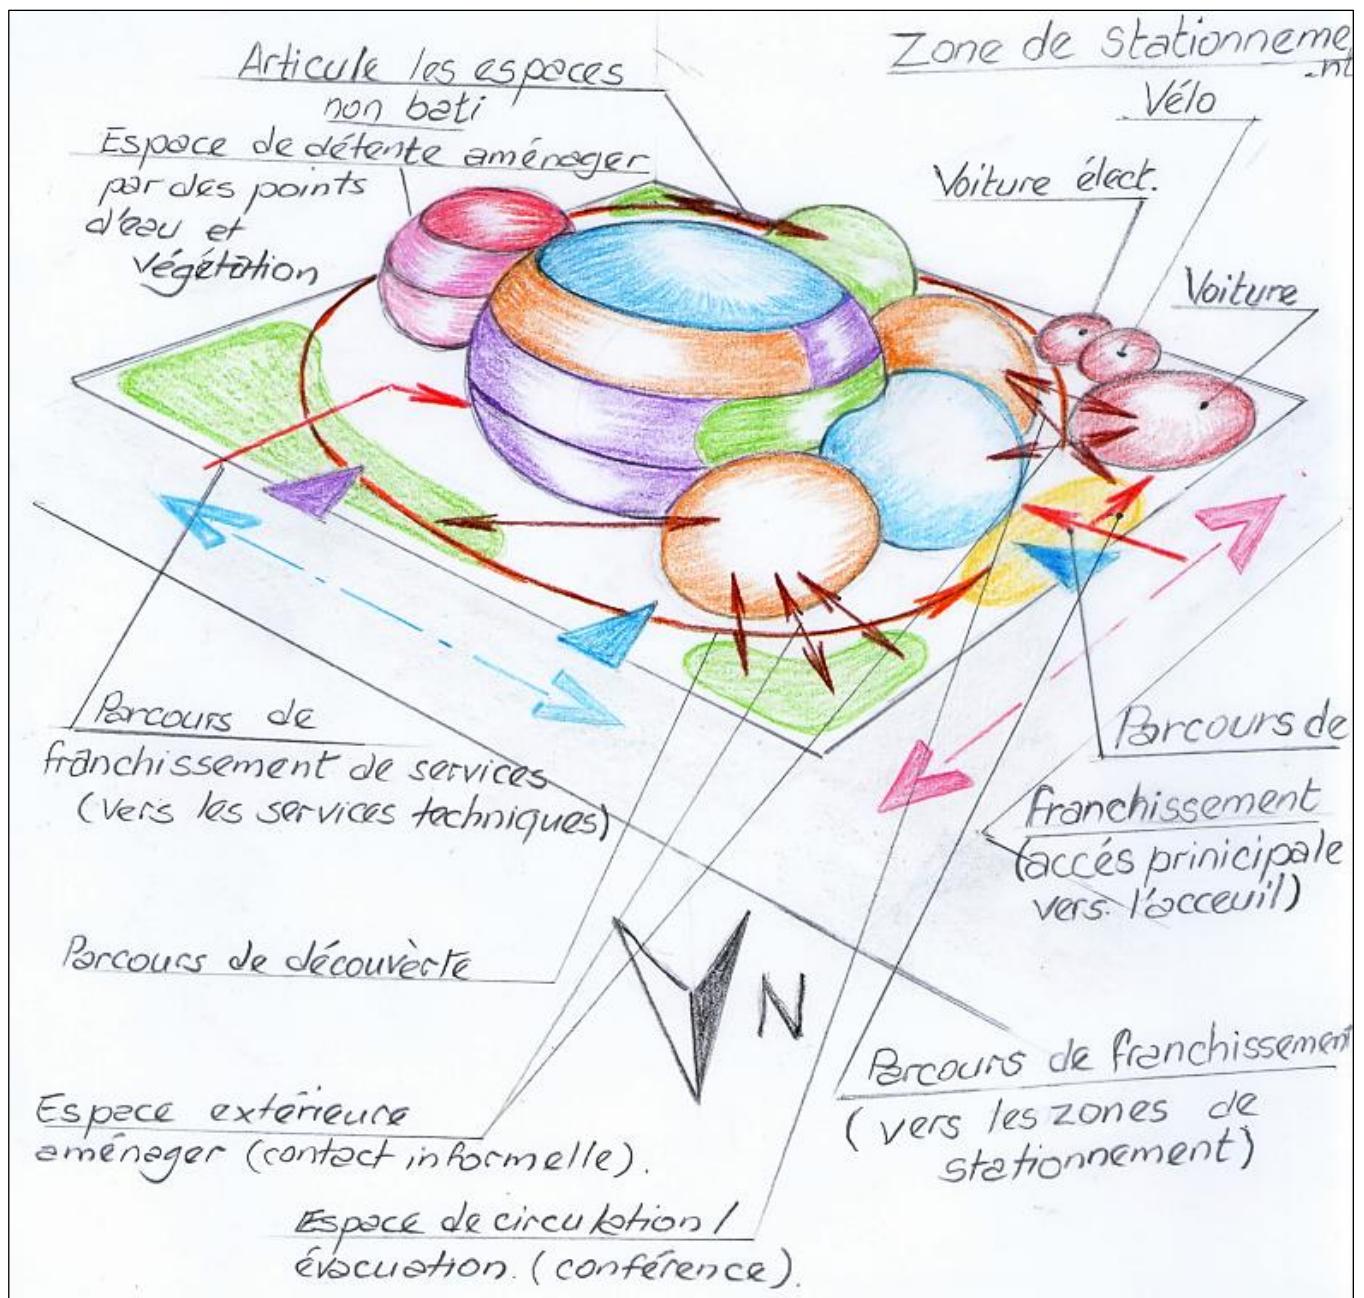 Articule les espaces
non bati
Espace de détente aménager
par des points
d'eau et
végétation
Zone de stationneme
-nt
Vélo
Voiture élect.
Voiture
Parcours de
franchissement de services
(vers les services techniques)
Parcours de
franchissement
(accés prinicipale
vers l'acceuil)
Parcours de découvèrte
N
Parcours de franchissement
(vers les zones de
stationnement)
Espace extérieure
aménager (contact informelle).
Espace de circulation/
évacuation. (conférence).